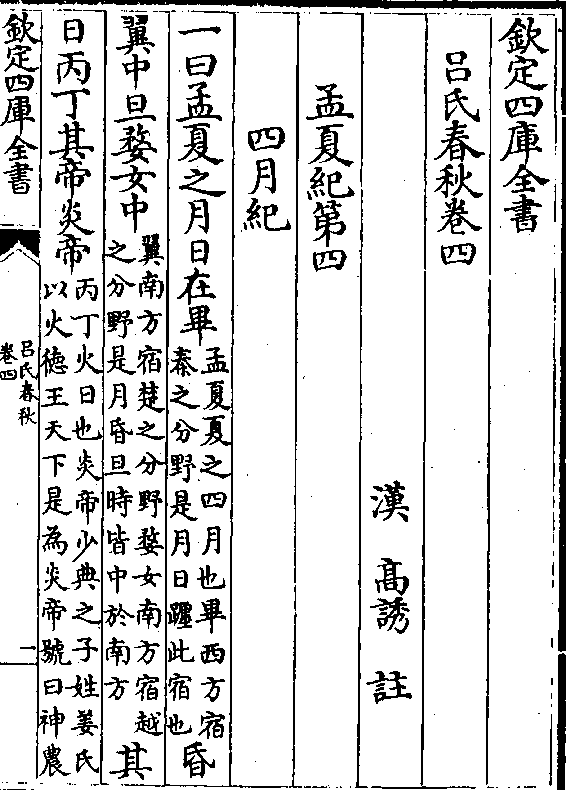 欽定四庫全書
呂氏春秋卷四
漢 高誘 註
孟夏紀第四
四月紀
一曰孟夏之月日在畢孟夏夏之四月也畢西方宿秦之分野是月日躔此宿也昏
翼中旦婺女中翼南方宿楚之分野婺女南方宿越之分野是月昏旦時皆中於南方其
日丙丁其帝炎帝丙丁火日也炎帝少典之子姓姜氏以火德王天下是為炎帝號曰神農
欽定四庫全書
呂氏春秋
卷四
一